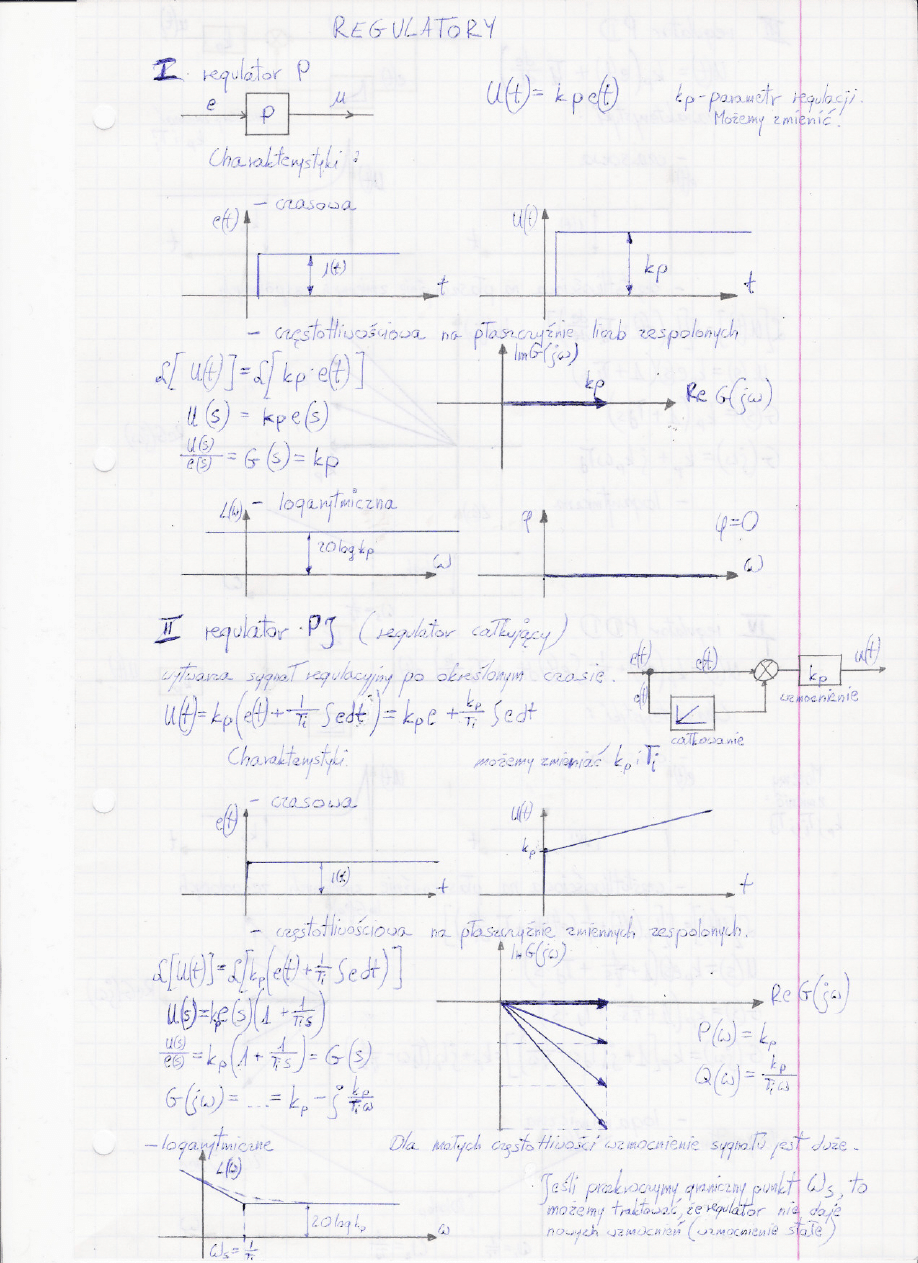 REGULATORY
I. regulator P
U(t) = kp e(t)
kp - parametr regulacji.
Możemy zmienić.
e
P
u
Charakterystyki:
- czasowa
e(t)
1(t)
t
U(t)
kp
t
- częstotliwościowa na płaszczyźnie liczb zespolonych
L[U(t)] = L[kp · e(t)]
U(s) = kp e(s)
U(s)/e(s) = G(s) = kp
Im G(jω)
kp
Re G(jω)
- logarytmiczna
L(ω)
20 log kp
ω
φ
φ=0
ω
II regulator PJ (regulator całkujący)
wytwarza sygnał regulacyjny po określonym czasie.
U(t) = kp(e(t) + 1/Ti ∫edt) = kp e + kp/Ti ∫edt
e(t)
e(t)
e(t)
kp
U(t)
wzmocnienie
całkowanie
Charakterystyki.
możemy zmieniać kp i Ti
- czasowa
e(t)
1(t)
t
U(t)
kp
t
- częstotliwościowa na płaszczyźnie zmiennych zespolonych.
L[U(t)] = L[kp(e(t) + 1/Ti ∫edt)]
U(s) = kp e(s)(1 + 1/Tis)
U(s)/e(s) = kp(1 + 1/Tis) = G(s)
G(jω) = ... = kp - j kp/Tiω
Im G(jω)
Re G(jω)
P(ω) = kp
Q(ω) = kp/Tiω
- logarytmiczne
L(ω)
20 log kp
ω
ωs = 1/Ti
Dla małych częstotliwości wzmocnienie sygnału jest duże.
Jeśli przekroczymy graniczny punkt ωs, to
możemy traktować, że regulator nie daje
nowych wzmocnień (wzmocnienie stałe)